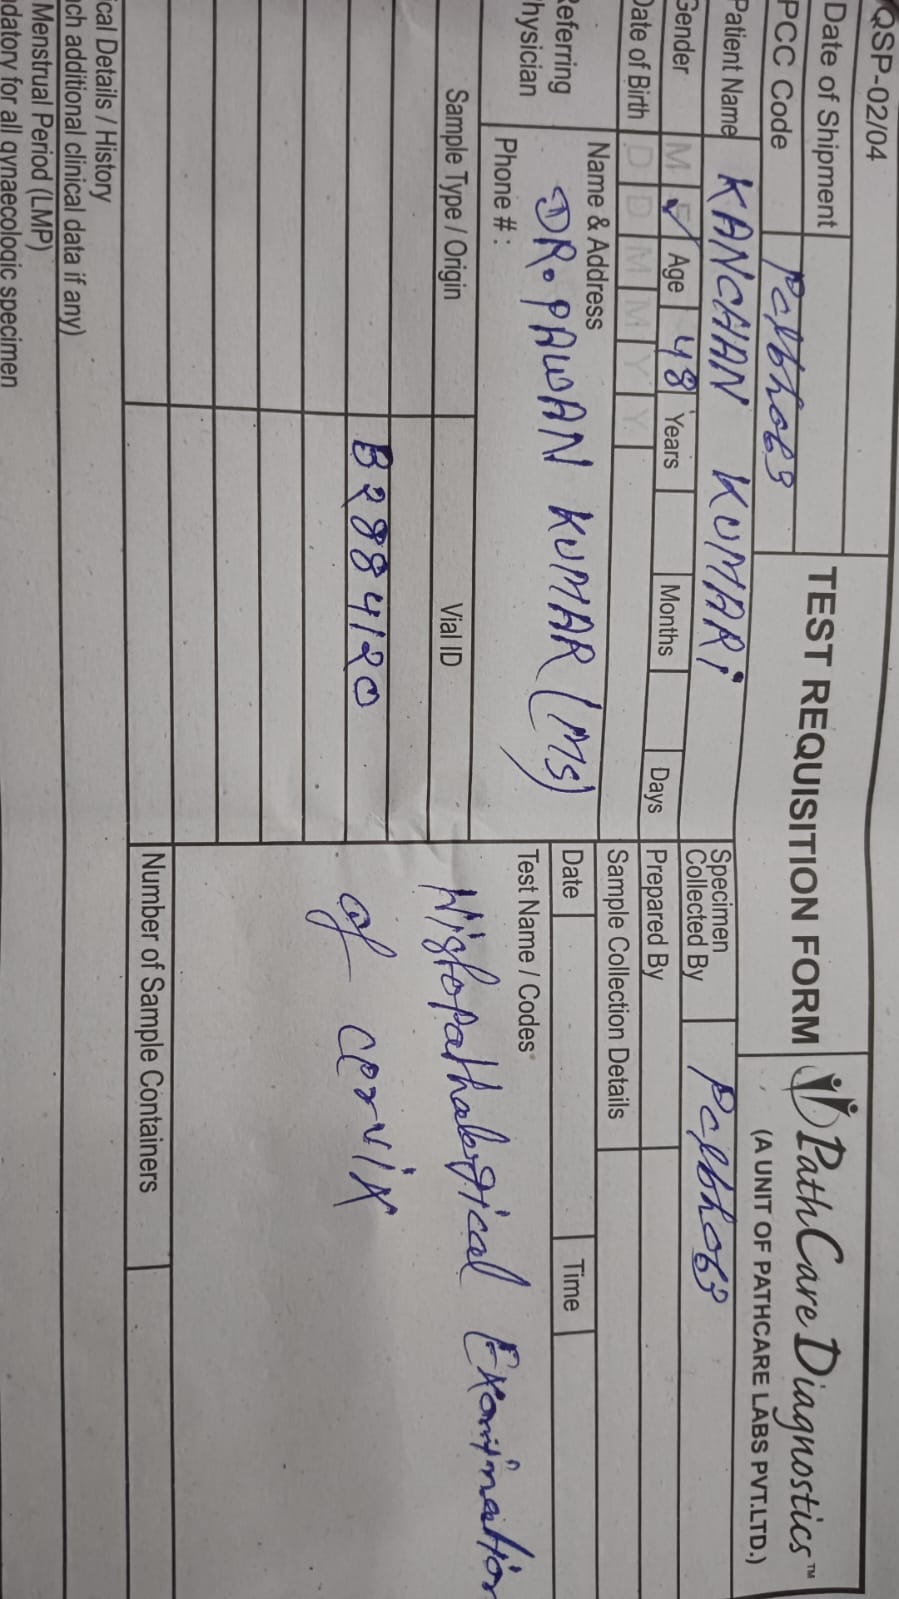 QSP-02/04
Date of Shipment
TEST REQUISITION FORM
PathCare Diagnostics™
(A UNIT OF PATHCARE LABS PVT.LTD.)
PCC Code
Patient Name KANCHAN KUMARI
Specimen Collected By
Gender M F ✓ Age 48 Years Months Days
Prepared By
Date of Birth D D M M Y Y
Sample Collection Details
Referring Physician
Name & Address
DR. PAWAN KUMAR (MS)
Phone # :
Date Time
Test Name / Codes
Histopathological Examination
of cervix
Sample Type / Origin Vial ID
B2884120
Number of Sample Containers
ical Details / History
ch additional clinical data if any)
Menstrual Period (LMP)
datory for all gynaecologic specimen